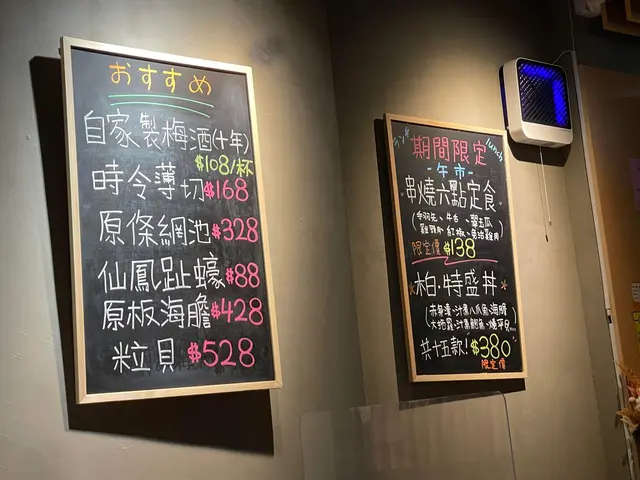 おすすめ
自家製梅酒(十年)
$108/杯
時令薄切$168
原條網池$328
仙鳳趾蠔$88
原板海膽$428
粒貝$528
期間限定
lunch
-午市-
串燒六點定食
限定價$138
柏·特盛丼
共十五款!$380
限定價